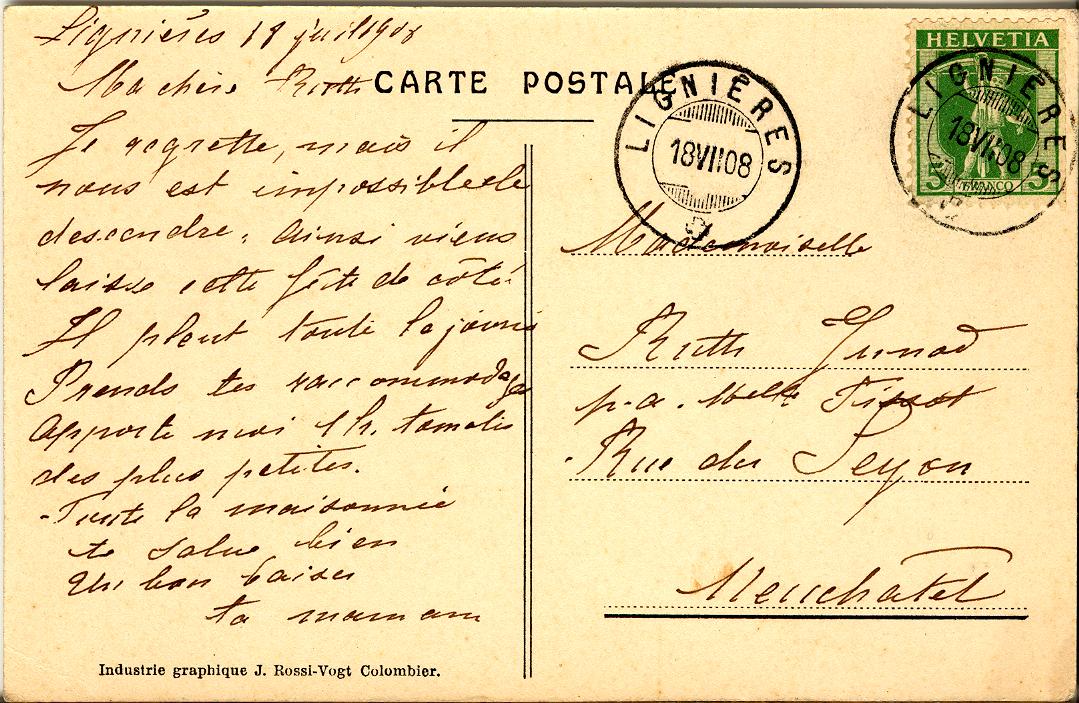 Lignières 18 juil 1908
Ma chère Ruth
CARTE POSTALE
Je regrette, mais il
nous est impossible de
descendre, ainsi viens
laisse cette fête de côté.
Il pleut toute la journée
Prends tes raccommodages
Apporte moi 1 h. tomates
des plus petites.
Toute la maisonnée
te salue bien
Un bon baiser
ta maman
Industrie graphique J. Rossi-Vogt Colombier.
LIGNIÈRES
18 VII 08
HELVETIA
5 FRANCO 5
LIGNIÈRES
18 VII 08
Mademoiselle
Ruth Junod
p. a. Melle Tissot
Rue du Seyon
Neuchâtel